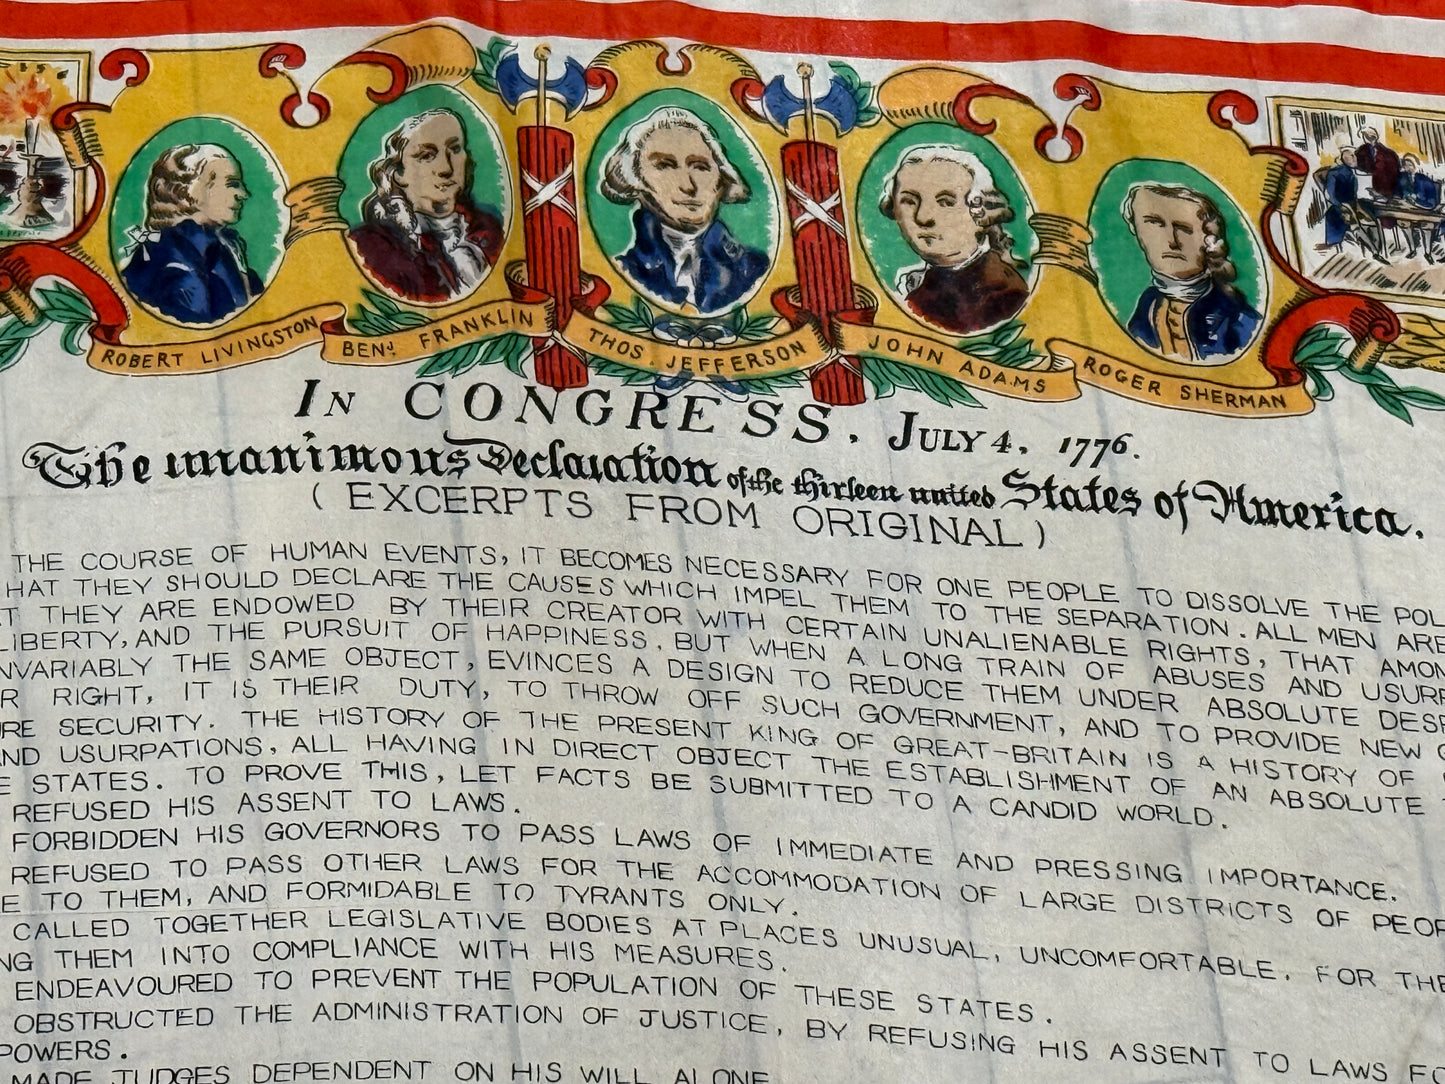 ROBERT LIVINGSTON
BENJ FRANKLIN
THOS. JEFFERSON
JOHN ADAMS
ROGER SHERMAN
IN CONGRESS, JULY 4, 1776.
The unanimous Declaration of the thirteen united States of America.
(EXCERPTS FROM ORIGINAL)
THE COURSE OF HUMAN EVENTS, IT BECOMES NECESSARY FOR ONE PEOPLE TO DISSOLVE THE POL
HAT THEY SHOULD DECLARE THE CAUSES WHICH IMPEL THEM TO THE SEPARATION. ALL MEN ARE
T THEY ARE ENDOWED BY THEIR CREATOR WITH CERTAIN UNALIENABLE RIGHTS, THAT AMON
LIBERTY, AND THE PURSUIT OF HAPPINESS. BUT WHEN A LONG TRAIN OF ABUSES AND USURP
NVARIABLY THE SAME OBJECT, EVINCES A DESIGN TO REDUCE THEM UNDER ABSOLUTE DESP
R RIGHT, IT IS THEIR DUTY, TO THROW OFF SUCH GOVERNMENT, AND TO PROVIDE NEW G
URE SECURITY. THE HISTORY OF THE PRESENT KING OF GREAT-BRITAIN IS A HISTORY OF
ND USURPATIONS, ALL HAVING IN DIRECT OBJECT THE ESTABLISHMENT OF AN ABSOLUTE
E STATES. TO PROVE THIS, LET FACTS BE SUBMITTED TO A CANDID WORLD.
REFUSED HIS ASSENT TO LAWS.
FORBIDDEN HIS GOVERNORS TO PASS LAWS OF IMMEDIATE AND PRESSING IMPORTANCE.
REFUSED TO PASS OTHER LAWS FOR THE ACCOMMODATION OF LARGE DISTRICTS OF PEOP
E TO THEM, AND FORMIDABLE TO TYRANTS ONLY.
CALLED TOGETHER LEGISLATIVE BODIES AT PLACES UNUSUAL, UNCOMFORTABLE, FOR THE
NG THEM INTO COMPLIANCE WITH HIS MEASURES.
ENDEAVOURED TO PREVENT THE POPULATION OF THESE STATES.
OBSTRUCTED THE ADMINISTRATION OF JUSTICE, BY REFUSING HIS ASSENT TO LAWS FO
POWERS.
MADE JUDGES DEPENDENT ON HIS WILL ALONE